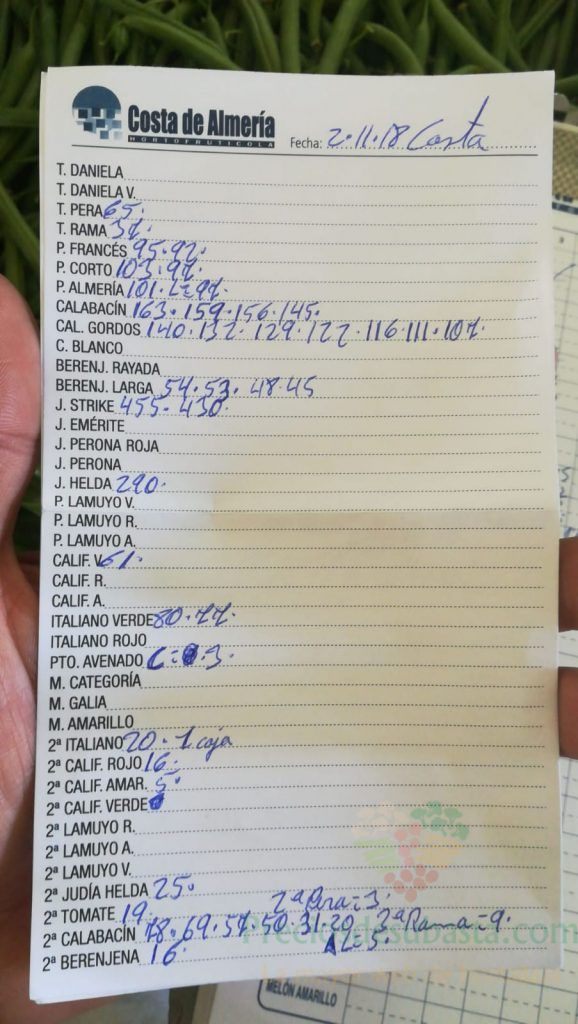 Costa de Almería
HORTOFRUTICOLA
Fecha: 2·11·18 Costa
T. DANIELA
T. DANIELA V.
T. PERA 65.
T. RAMA 37.
P. FRANCÉS 95·92.
P. CORTO 103·97.
P. ALMERÍA 101. L=97.
CALABACÍN 163·159·156·145.
CAL. GORDOS 140·132·129·127·116·111·107.
C. BLANCO
BERENJ. RAYADA
BERENJ. LARGA 54·53·48·45
J. STRIKE 455·430.
J. EMÉRITE
J. PERONA ROJA
J. PERONA
J. HELDA 290.
P. LAMUYO V.
P. LAMUYO R.
P. LAMUYO A.
CALIF. V. 61.
CALIF. R.
CALIF. A.
ITALIANO VERDE 80·77.
ITALIANO ROJO
PTO. AVENADO C= 3.
M. CATEGORÍA
M. GALIA
M. AMARILLO
2ª ITALIANO 20·1 caja
2ª CALIF. ROJO 16.
2ª CALIF. AMAR. 5.
2ª CALIF. VERDE
2ª LAMUYO R.
2ª LAMUYO A.
2ª LAMUYO V.
2ª JUDÍA HELDA 25.
2ª TOMATE 19. 2ª Pera=3.
2ª CALABACÍN 78·69·57·50·31·20 2ª Rama=9.
2ª BERENJENA 16 L=5.
Preciosdesubasta.com
MELÓN AMARILLO